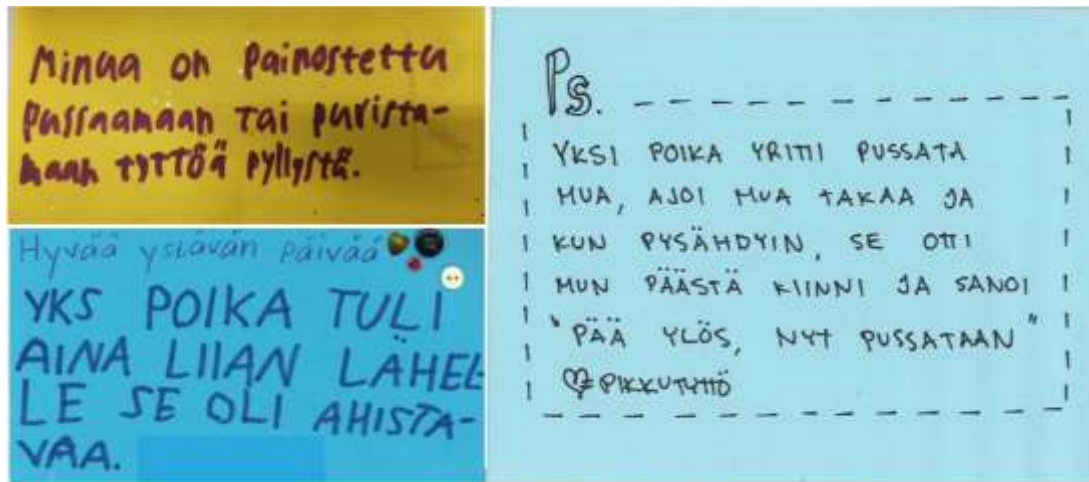 Minua on Painostettu
pussaamaan tai purista-
maan tyttöä pyllystä.
Hyvää ystävän päivää
YKS POIKA TULI
AINA LIIAN LÄHEL-
LE SE OLI AHISTA-
VAA.
Ps.
YKSI POIKA YRITTI PUSSATA
MUA, AJOI MUA TAKAA JA
KUN PYSÄHDYIN, SE OTTI
MUN PÄÄSTÄ KIINNI JA SANOI
"PÄÄ YLÖS, NYT PUSSATAAN"
PIKKUTYTTÖ